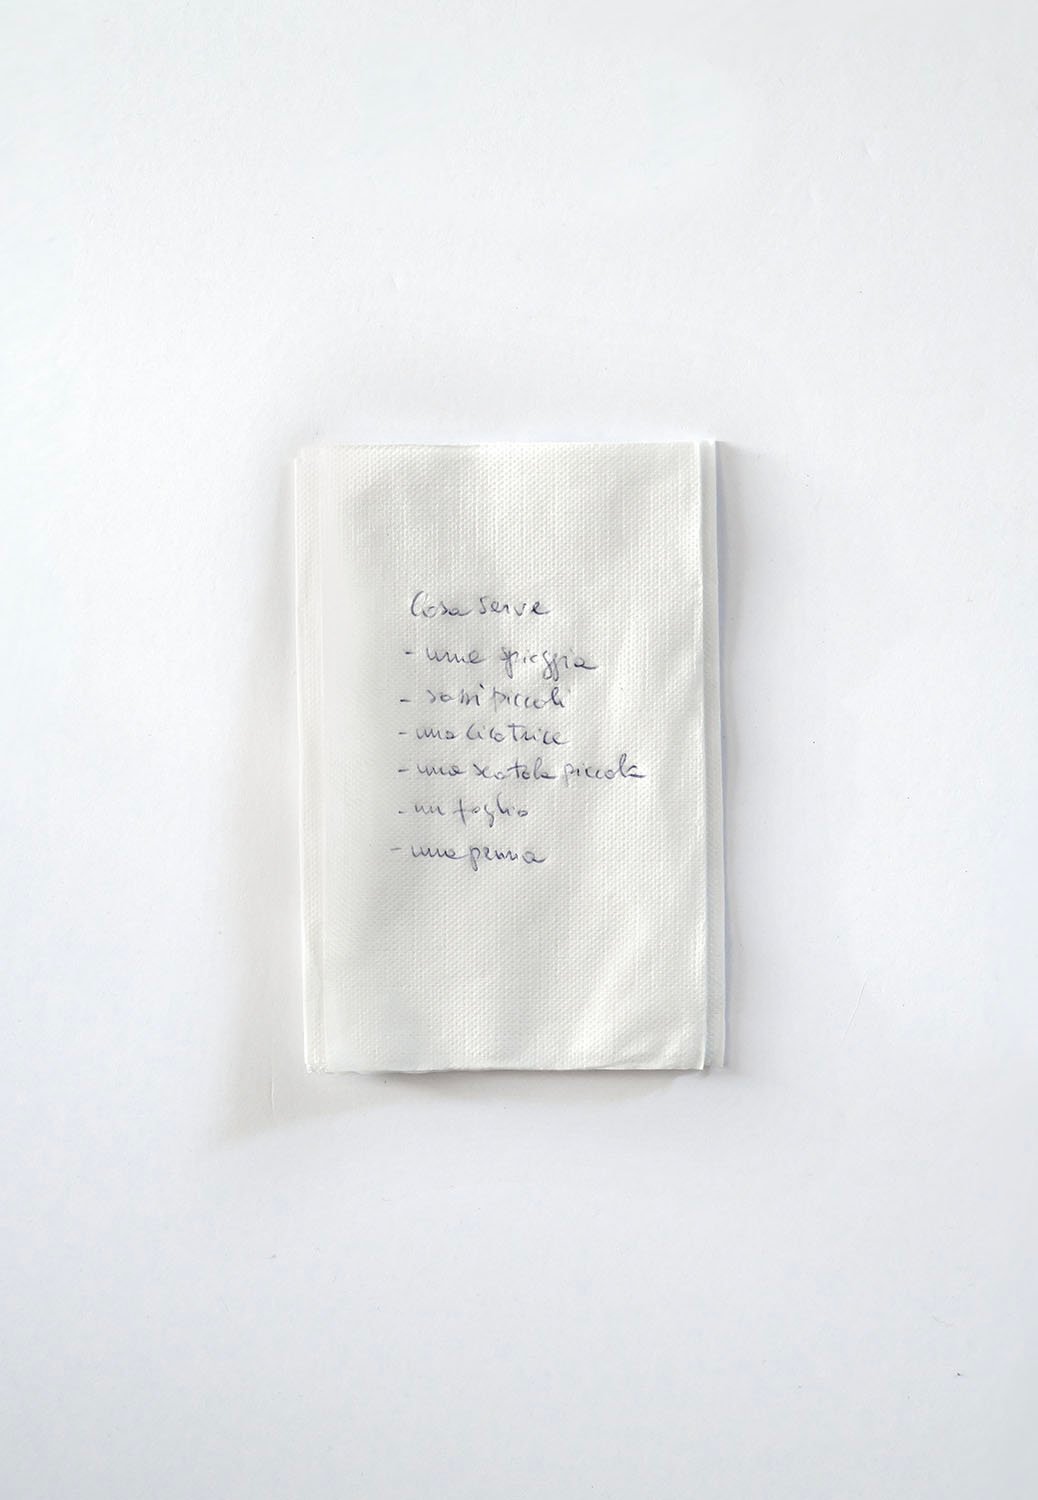 Cosa serve
- una spiaggia
- sassi piccoli
- una cicatrice
- una scatola piccola
- un foglio
- una penna